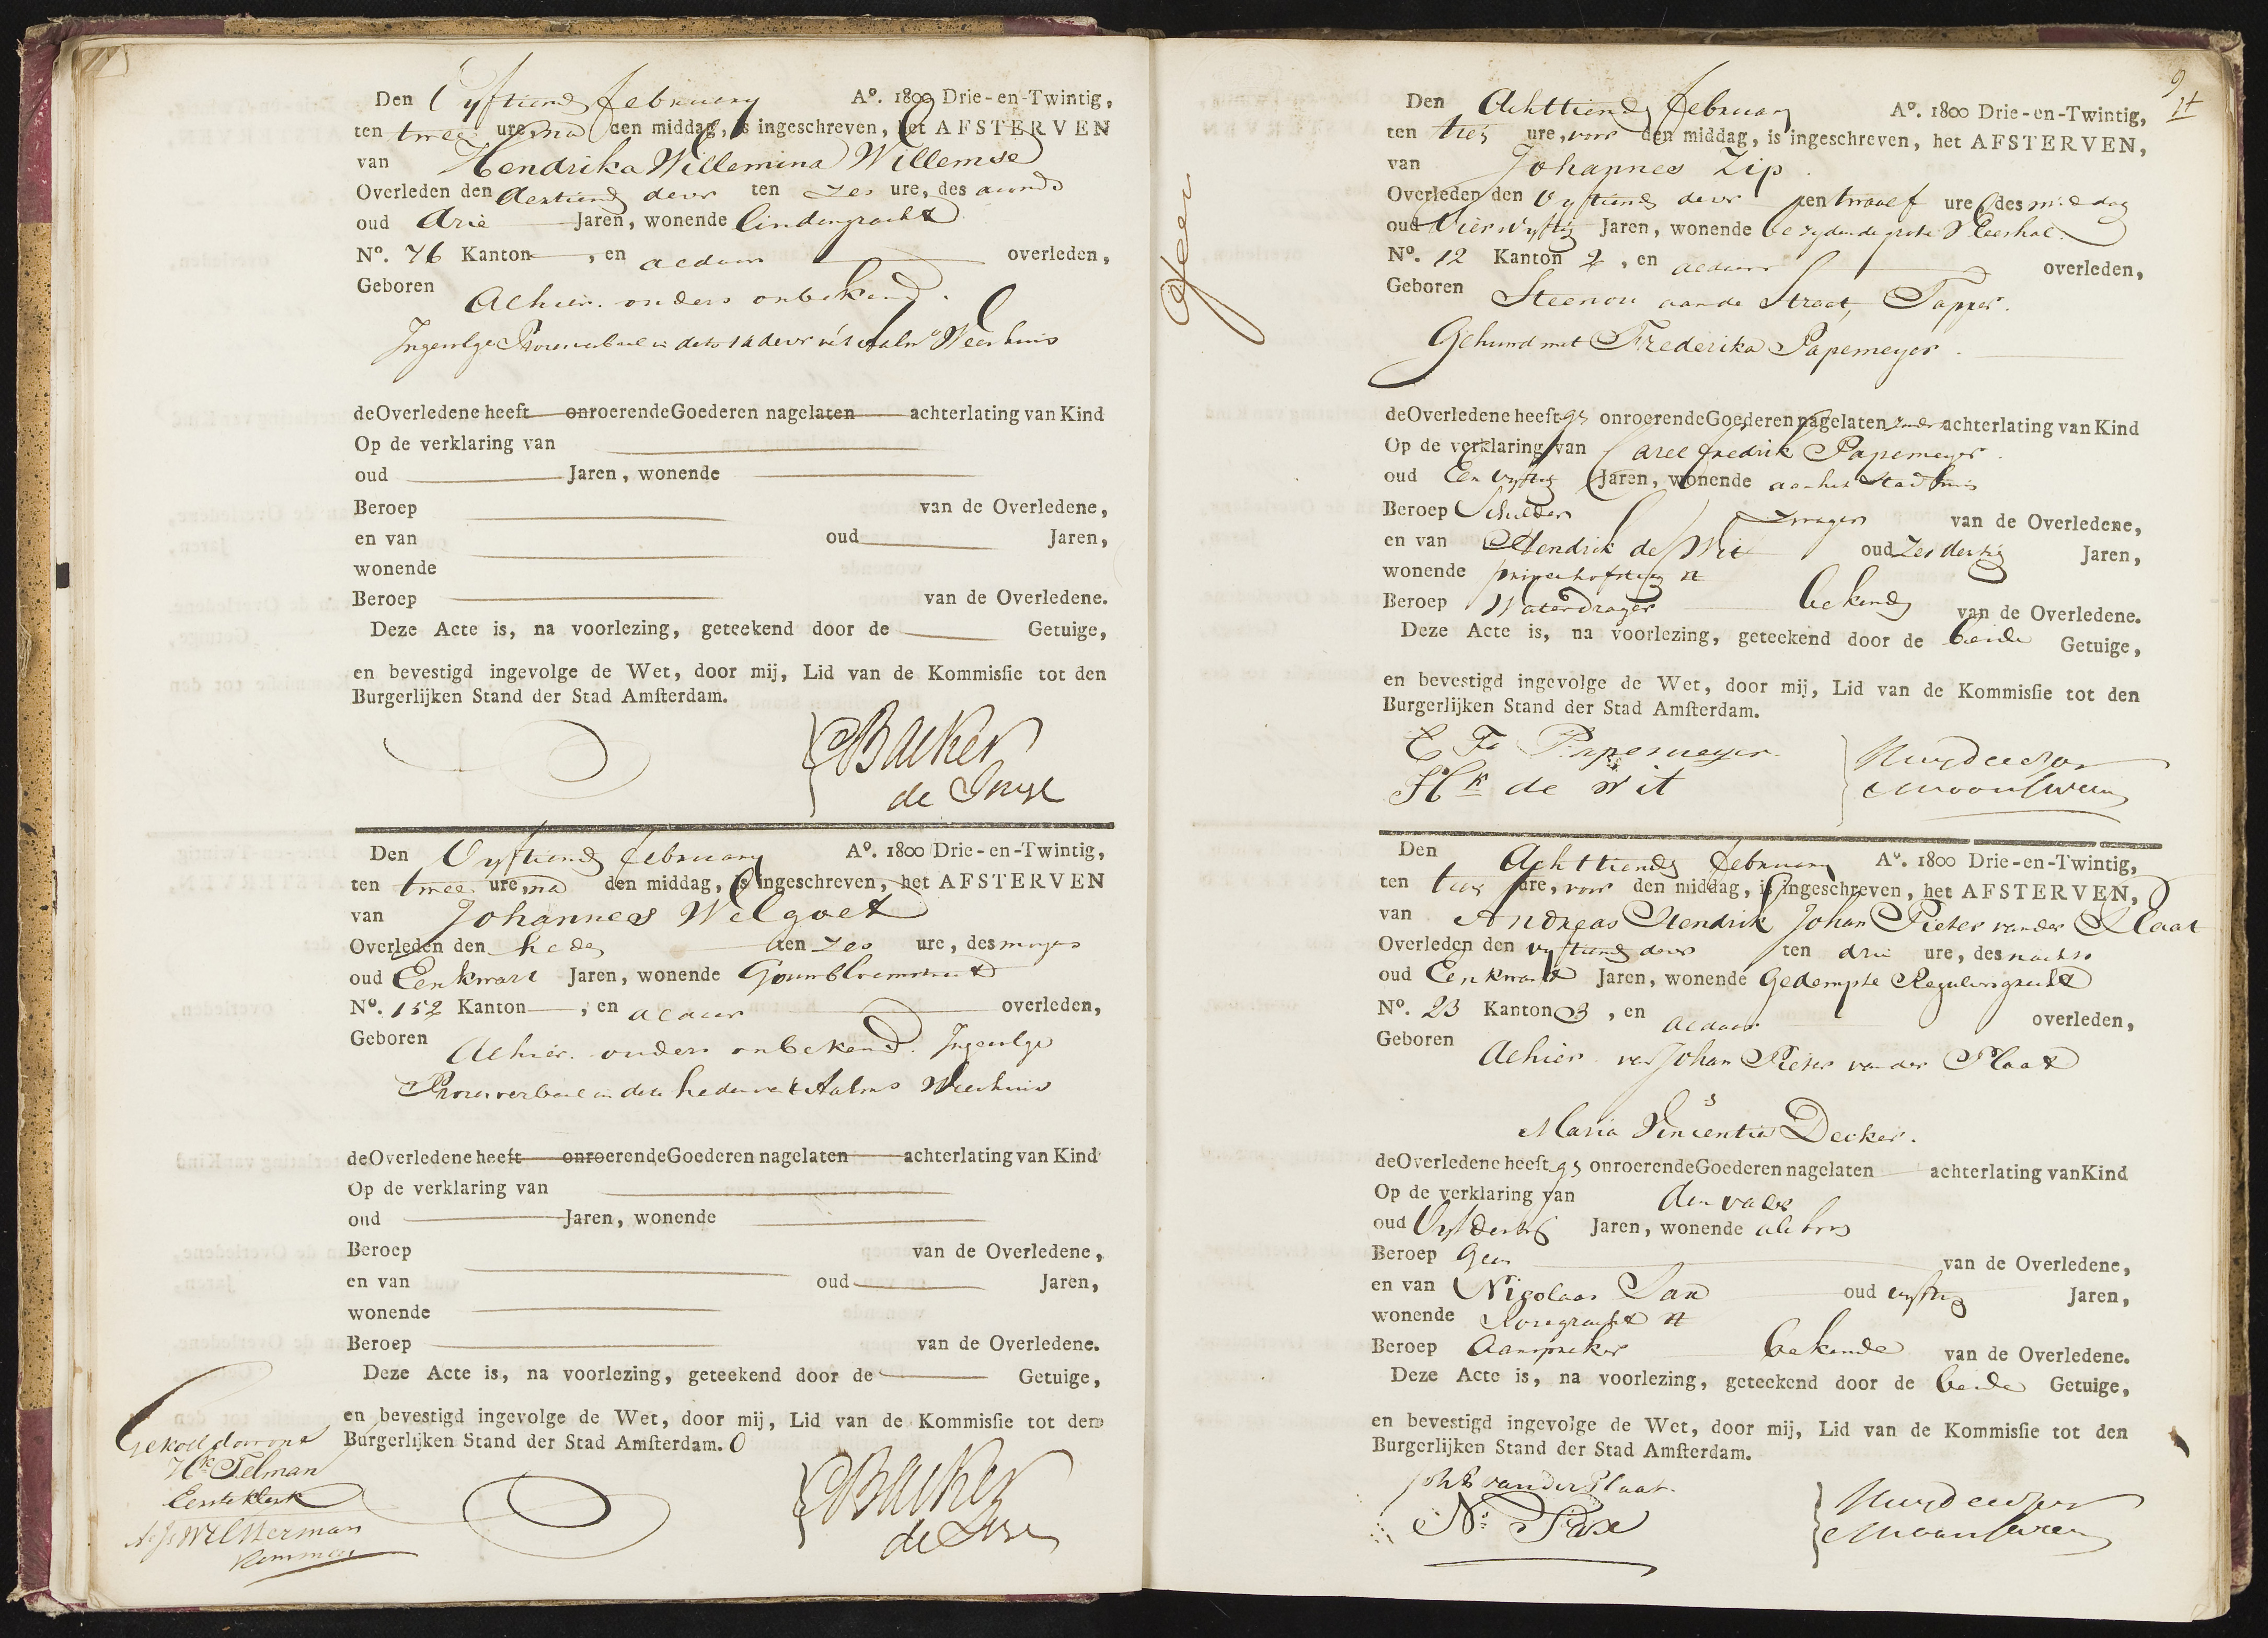 Den Vyftiende february Aº. 1800 Drie-en-Twintig,
ten twee ure, na den middag, is ingeschreven, het AFSTERVEN
van Hendrika Willemina Willemse
Overleden den dertiende dezer ten zes ure, des avonds
oud drie Jaren, wonende lindengracht
Nº. 76 Kanton , en aldaar overleden,
Geboren Alhier. ouders onbekend.
Ingevolge Procesverbaal in dato 14 dezer uit 't Aalm. Weeshuis
de Overledene heeft onroerende Goederen nagelaten achterlating van Kind
Op de verklaring van
oud Jaren, wonende
Beroep van de Overledene,
en van oud Jaren,
wonende
Beroep van de Overledene.
Deze Acte is, na voorlezing, geteekend door de Getuige,
en bevestigd ingevolge de Wet, door mij, Lid van de Kommisſie tot den
Burgerlijken Stand der Stad Amſterdam.
Backer
Den Vyftiende february Aº. 1800 Drie-en-Twintig,
ten twee ure, na den middag, is ingeschreven, het AFSTERVEN
van Johannes Welgoet
Overleden den heden ten zes ure, des morgens
oud Een kwart Jaren, wonende Goudbloemstraat
Nº. 152 Kanton , en aldaar overleden,
Geboren Alhier. ouders onbekend. Ingevolge
Procesverbaal in dato heden uit 't Aalms Weeshuis
de Overledene heeft onroerende Goederen nagelaten achterlating van Kind
Op de verklaring van
oud Jaren, wonende
Beroep van de Overledene,
en van oud Jaren,
wonende
Beroep van de Overledene.
Deze Acte is, na voorlezing, geteekend door de Getuige,
en bevestigd ingevolge de Wet, door mij, Lid van de Kommisſie tot den
Burgerlijken Stand der Stad Amſterdam.
Backer
Gekoll door ons
Hk Telman
Eerste klerk
9
Geen
Den Achttiende february Aº. 1800 Drie-en-Twintig,
ten tien ure, voor den middag, is ingeschreven, het AFSTERVEN,
van Johannes Zip.
Overleden den Vyftiende dezer ten twaalf ure, des middag
oud Vier vyftig Jaren, wonende bezyden de grote Vleeshal.
Nº. 12 Kanton 2 , en aldaar overleden,
Geboren Steenou aan de Straat, Tapper.
Gehuwd met Frederika Papemeyer.
de Overledene heeft gn onroerende Goederen nagelaten zonder achterlating van Kind
Op de verklaring van Carel fredrik Papemeyer.
oud Een vyftig Jaren, wonende aan het Stadhuis
Beroep Schilder Zwager van de Overledene,
en van Hendrik de Wit oud Zes dertig Jaren,
wonende prinsehofsteeg
Beroep Waterdrager bekende van de Overledene.
Deze Acte is, na voorlezing, geteekend door de beide Getuige,
en bevestigd ingevolge de Wet, door mij, Lid van de Kommisſie tot den
Burgerlijken Stand der Stad Amſterdam.
C Fr Papemeyer
Hk de Wit
Den Achttiende february Aº. 1800 Drie-en-Twintig,
ten tien ure, voor den middag, is ingeschreven, het AFSTERVEN,
van Andreas Hendrik Johan Pieter van der Plaat
Overleden den vyftiende dezer ten drie ure, des nachts
oud Een kwart Jaren, wonende Gedempte Reguliersgracht
Nº. 23 Kanton 3 , en aldaar overleden,
Geboren Alhier van Johan Pieter van der Plaat
&
Maria Vincentia Decker.
de Overledene heeft gn onroerende Goederen nagelaten achterlating van Kind
Op de verklaring van den vader
oud Vyf dertig Jaren, wonende als bov
Beroep Geen van de Overledene,
en van Nicolaas Pax oud vyftig Jaren,
wonende Rosegracht
Beroep Aanspreker bekende van de Overledene.
Deze Acte is, na voorlezing, geteekend door de beide Getuige,
en bevestigd ingevolge de Wet, door mij, Lid van de Kommisſie tot den
Burgerlijken Stand der Stad Amſterdam.
Joh P van der Plaat.
Ns Pax